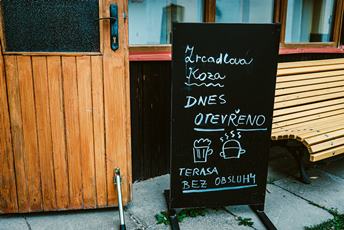 Zrcadlová
Koza
DNES
OTEVŘENO
TERASA
BEZ OBSLUHY